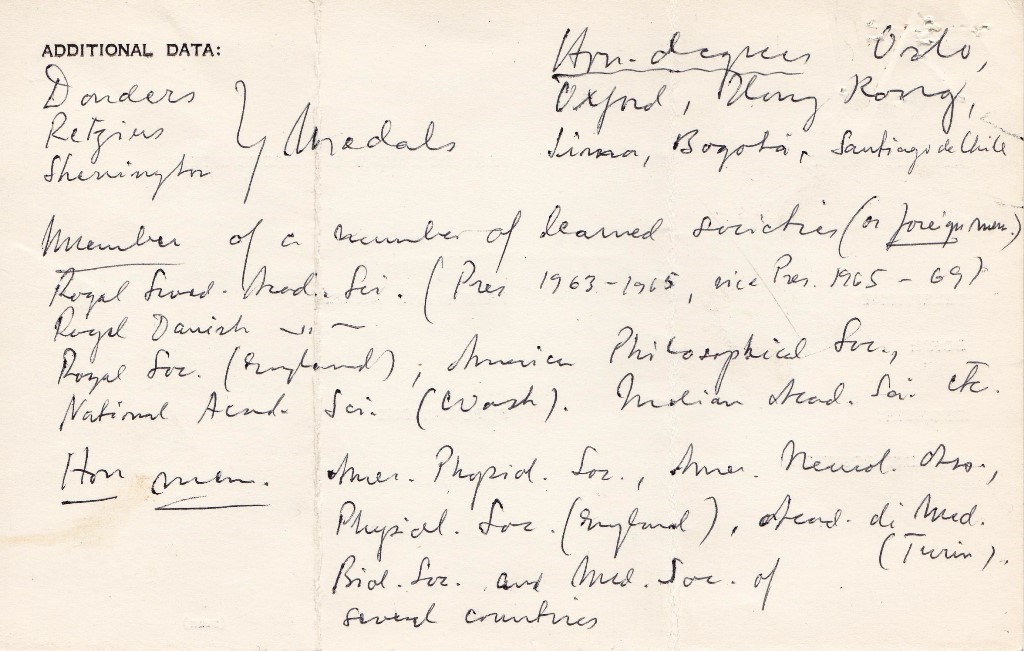 ADDITIONAL DATA:
Donders
Retzius
Sherrington
} Medals
Hon. degrees Oslo,
Oxford, Hong Kong,
Lima, Bogotá, Santiago de Chile
Member of a number of learned societies (or foreign mem.)
Royal Swed. Acad. Sci. (Pres 1963-1965, vice Pres. 1965-69)
Royal Danish —"—
Royal Soc. (England); American Philosophical Soc.,
National Acad. Sci. (Wash). Indian Acad. Sci. etc.
Hon mem. Amer. Physiol. Soc., Amer. Neurol. Asso.,
Physiol. Soc. (England), Acad. di Med.
(Turin).
Biol. Soc. and Med. Soc. of
several countries